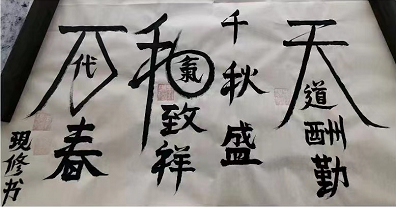 天道酬勤
千秋盛
和氣致祥
万代春
現修书